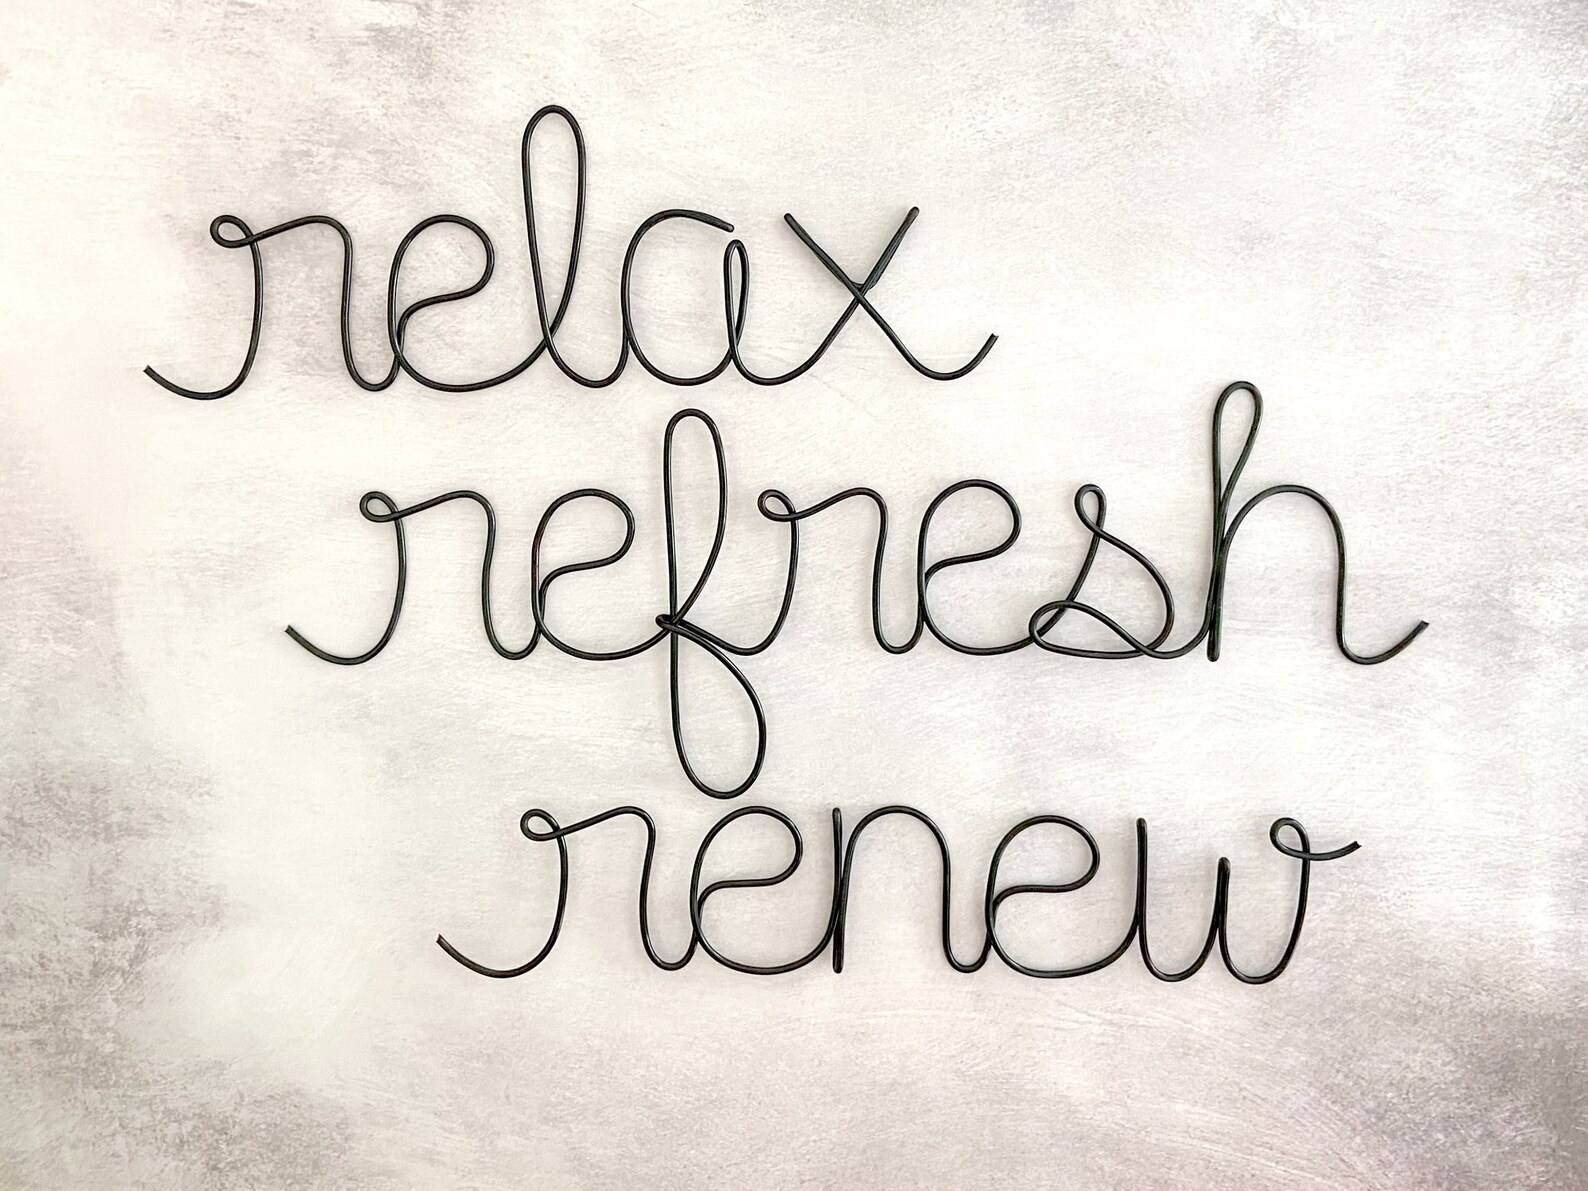 relax
refresh
renew